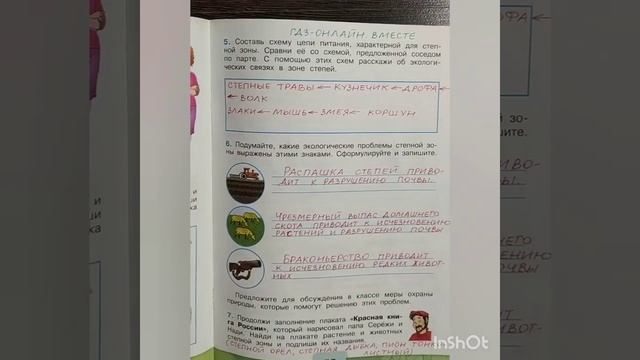 ГДЗ-ОНЛАЙН. ВМЕСТЕ
5. Составь схему цепи питания, характерной для степ-
ной зоны. Сравни её со схемой, предложенной соседом
по парте. С помощью этих схем расскажи об экологи-
ческих связях в зоне степей.
СТЕПНЫЕ ТРАВЫ ← КУЗНЕЧИК ← ДРОФА ←
← ВОЛК
ЗЛАКИ ← МЫШЬ ← ЗМЕЯ ← КОРШУН
6. Подумайте, какие экологические проблемы степной зо-
ны выражены этими знаками. Сформулируйте и запишите.
РАСПАШКА СТЕПЕЙ ПРИВО-
ДИТ К РАЗРУШЕНИЮ ПОЧВЫ.
ЧРЕЗМЕРНЫЙ ВЫПАС ДОМАШНЕГО
СКОТА ПРИВОДИТ К ИСЧЕЗНОВЕНИЮ
РАСТЕНИЙ И РАЗРУШЕНИЮ ПОЧВЫ
БРАКОНЬЕРСТВО ПРИВОДИТ
К ИСЧЕЗНОВЕНИЮ РЕДКИХ ЖИВОТ-
НЫХ
Предложите для обсуждения в классе меры охраны
природы, которые помогут решению этих проблем.
7. Продолжи заполнение плаката «Красная кни-
га России», который нарисовал папа Серёжи и
Нади. Найди на плакате растение и животных
степной зоны и подпиши их названия.
(СТЕПНОЙ ОРЕЛ, СТЕПНАЯ ДЫБКА, ПИОН ТОНКО-
ЛИСТНЫЙ)
InShOt